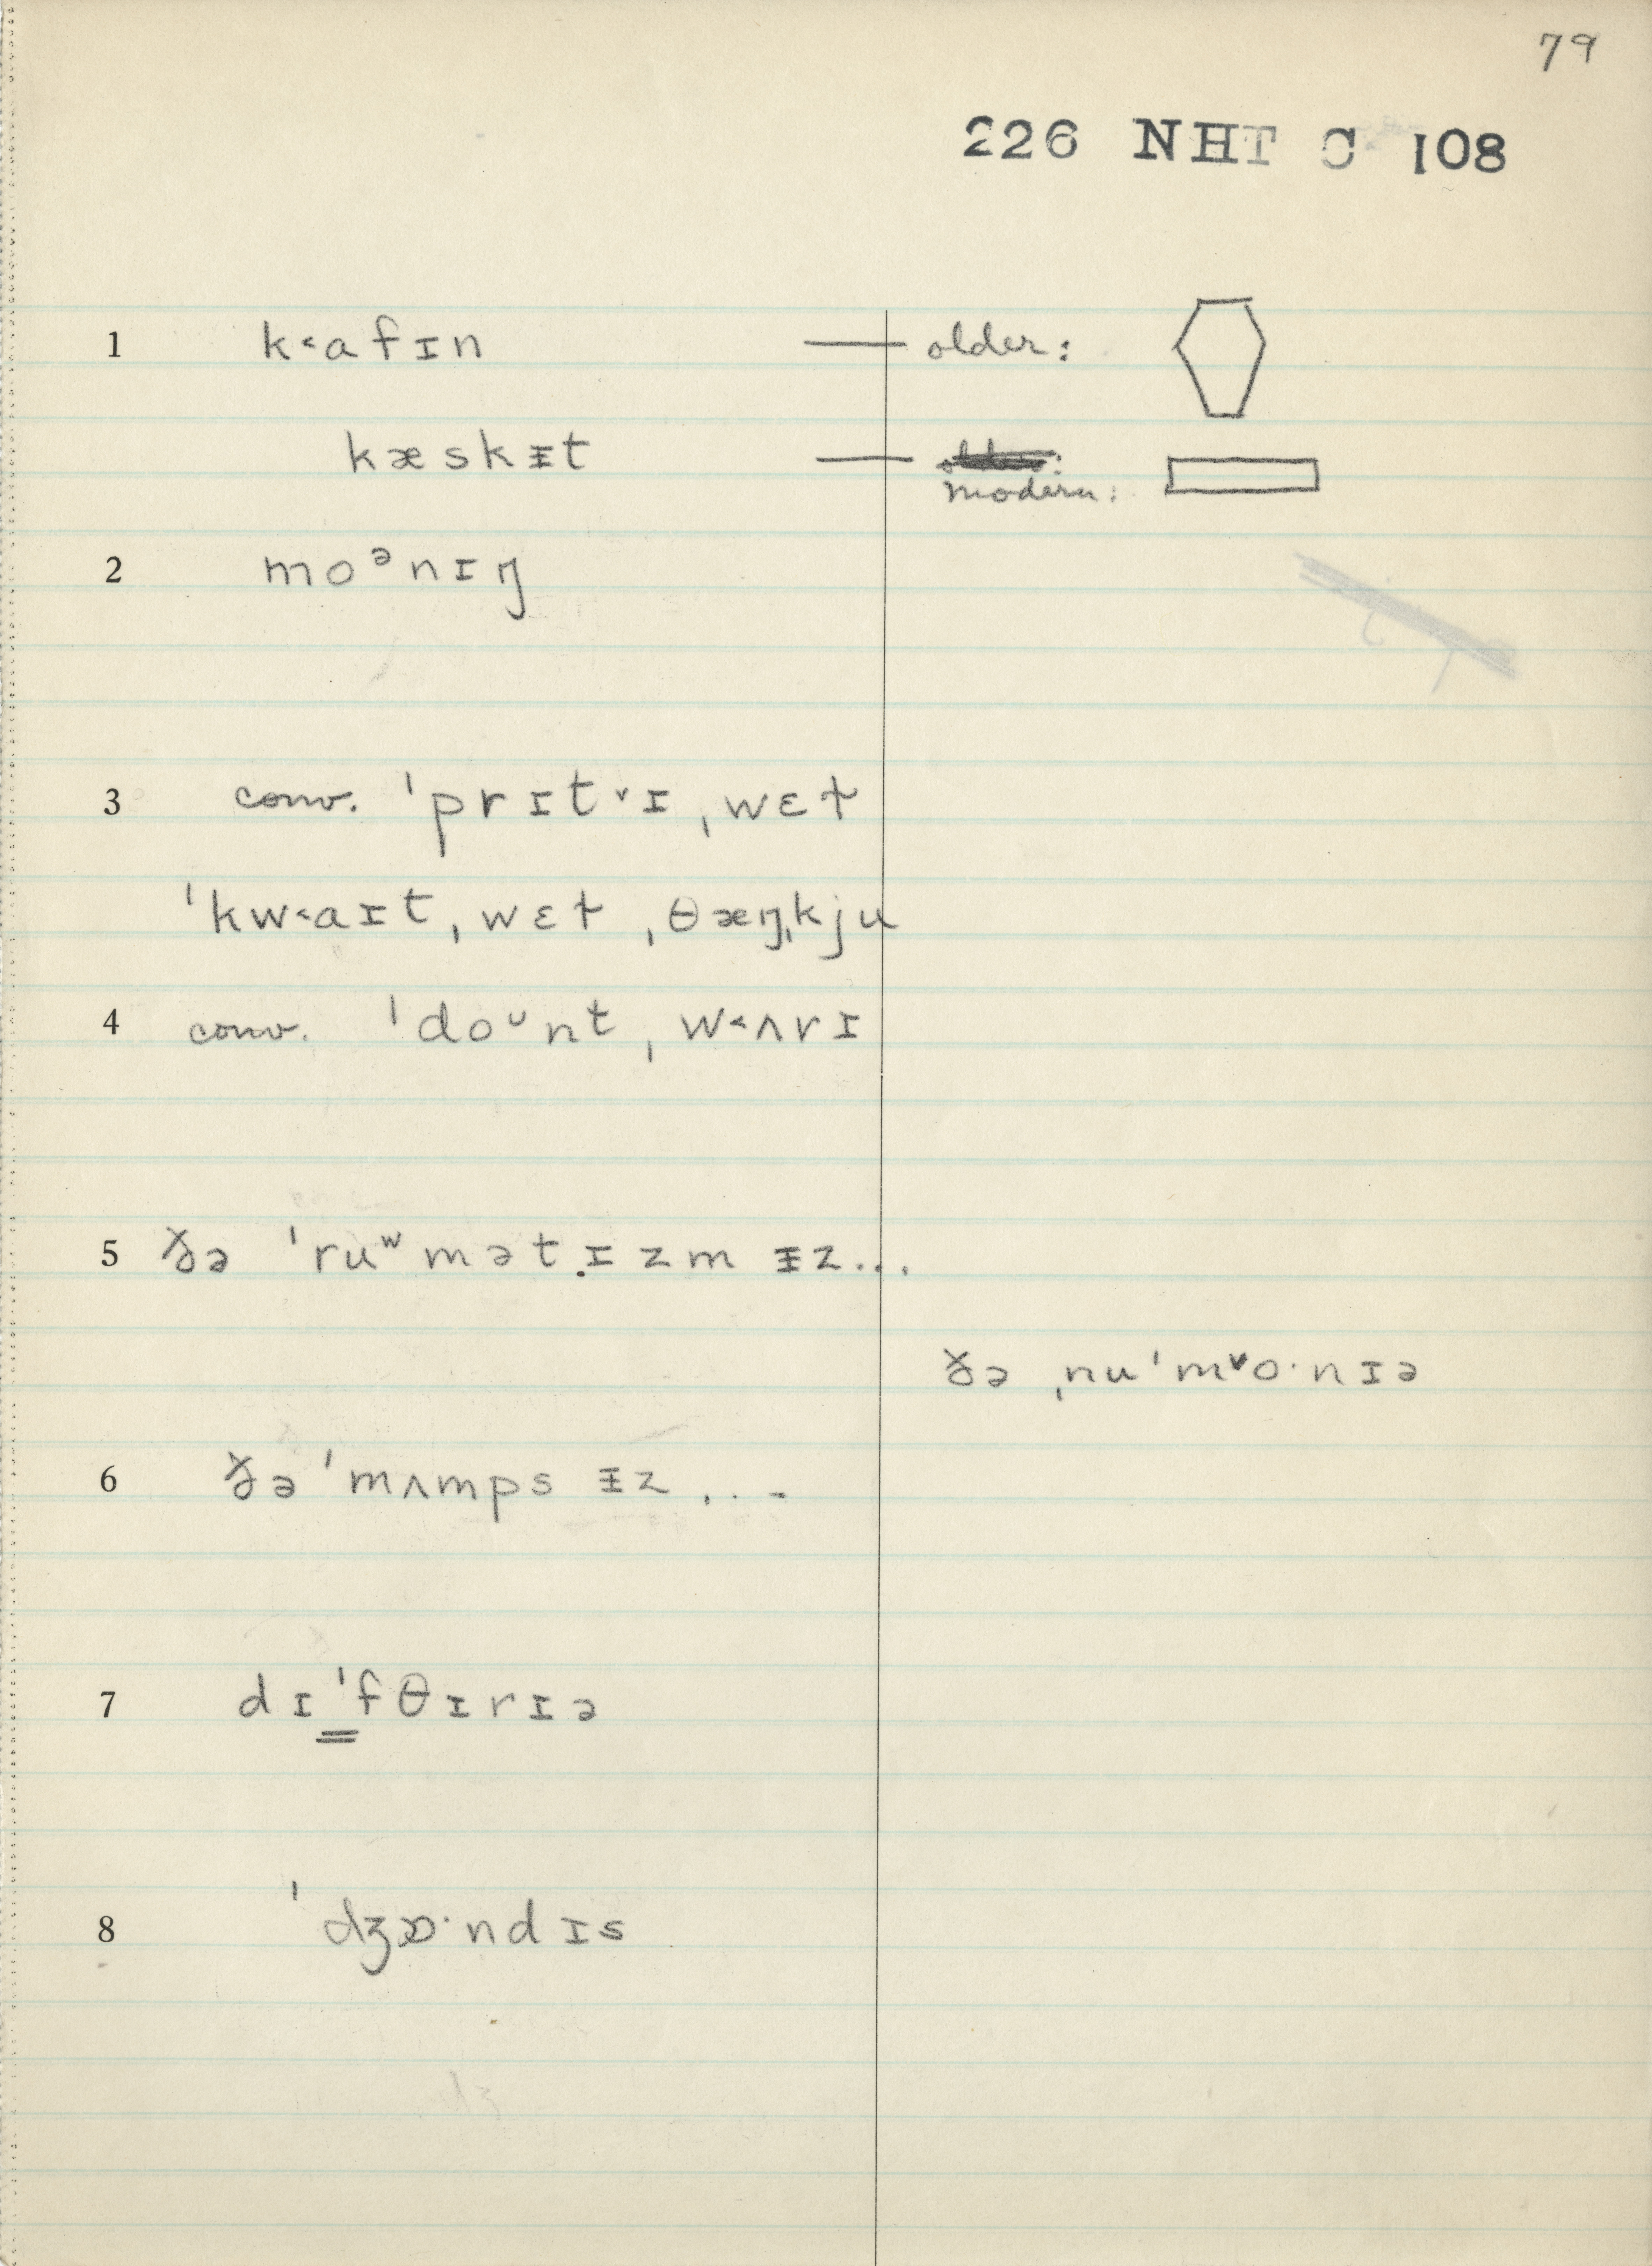 79
226 NHT C 108
1 k˂afɪn — older:
kæskᵻt — modern:
2 moᵊnɪŋ
3 conv. ˈprɪt˅ɪ ˌwɛɫ
ˈkw˂aɪt ˌwɛɫ ˌθæŋˌkju
4 conv. ˈdoᶷnt ˌw˂ʌrɪ
5 ðə ˈruʷmətɪzm ᵻz...
ðə ˌnuˈm˅o·nɪə
6 ðə ˈmʌmps ᵻz ...
7 dɪˈfθɪrɪə
8 ˈdʒɒ·ndɪs